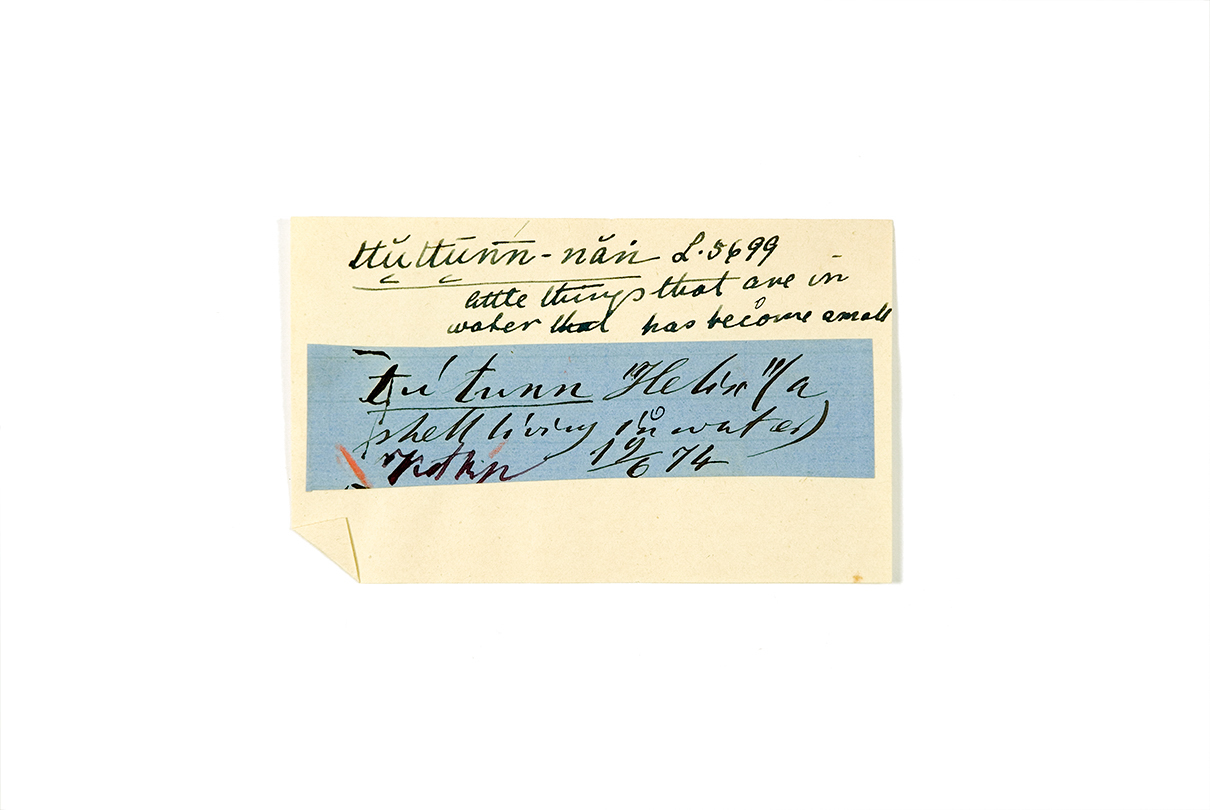 ttŭttūn̄n̄-năṅ L.5699
little things that are in
water that has become small
tú tunn "Helix" (a
shell living in water)
19/6 74